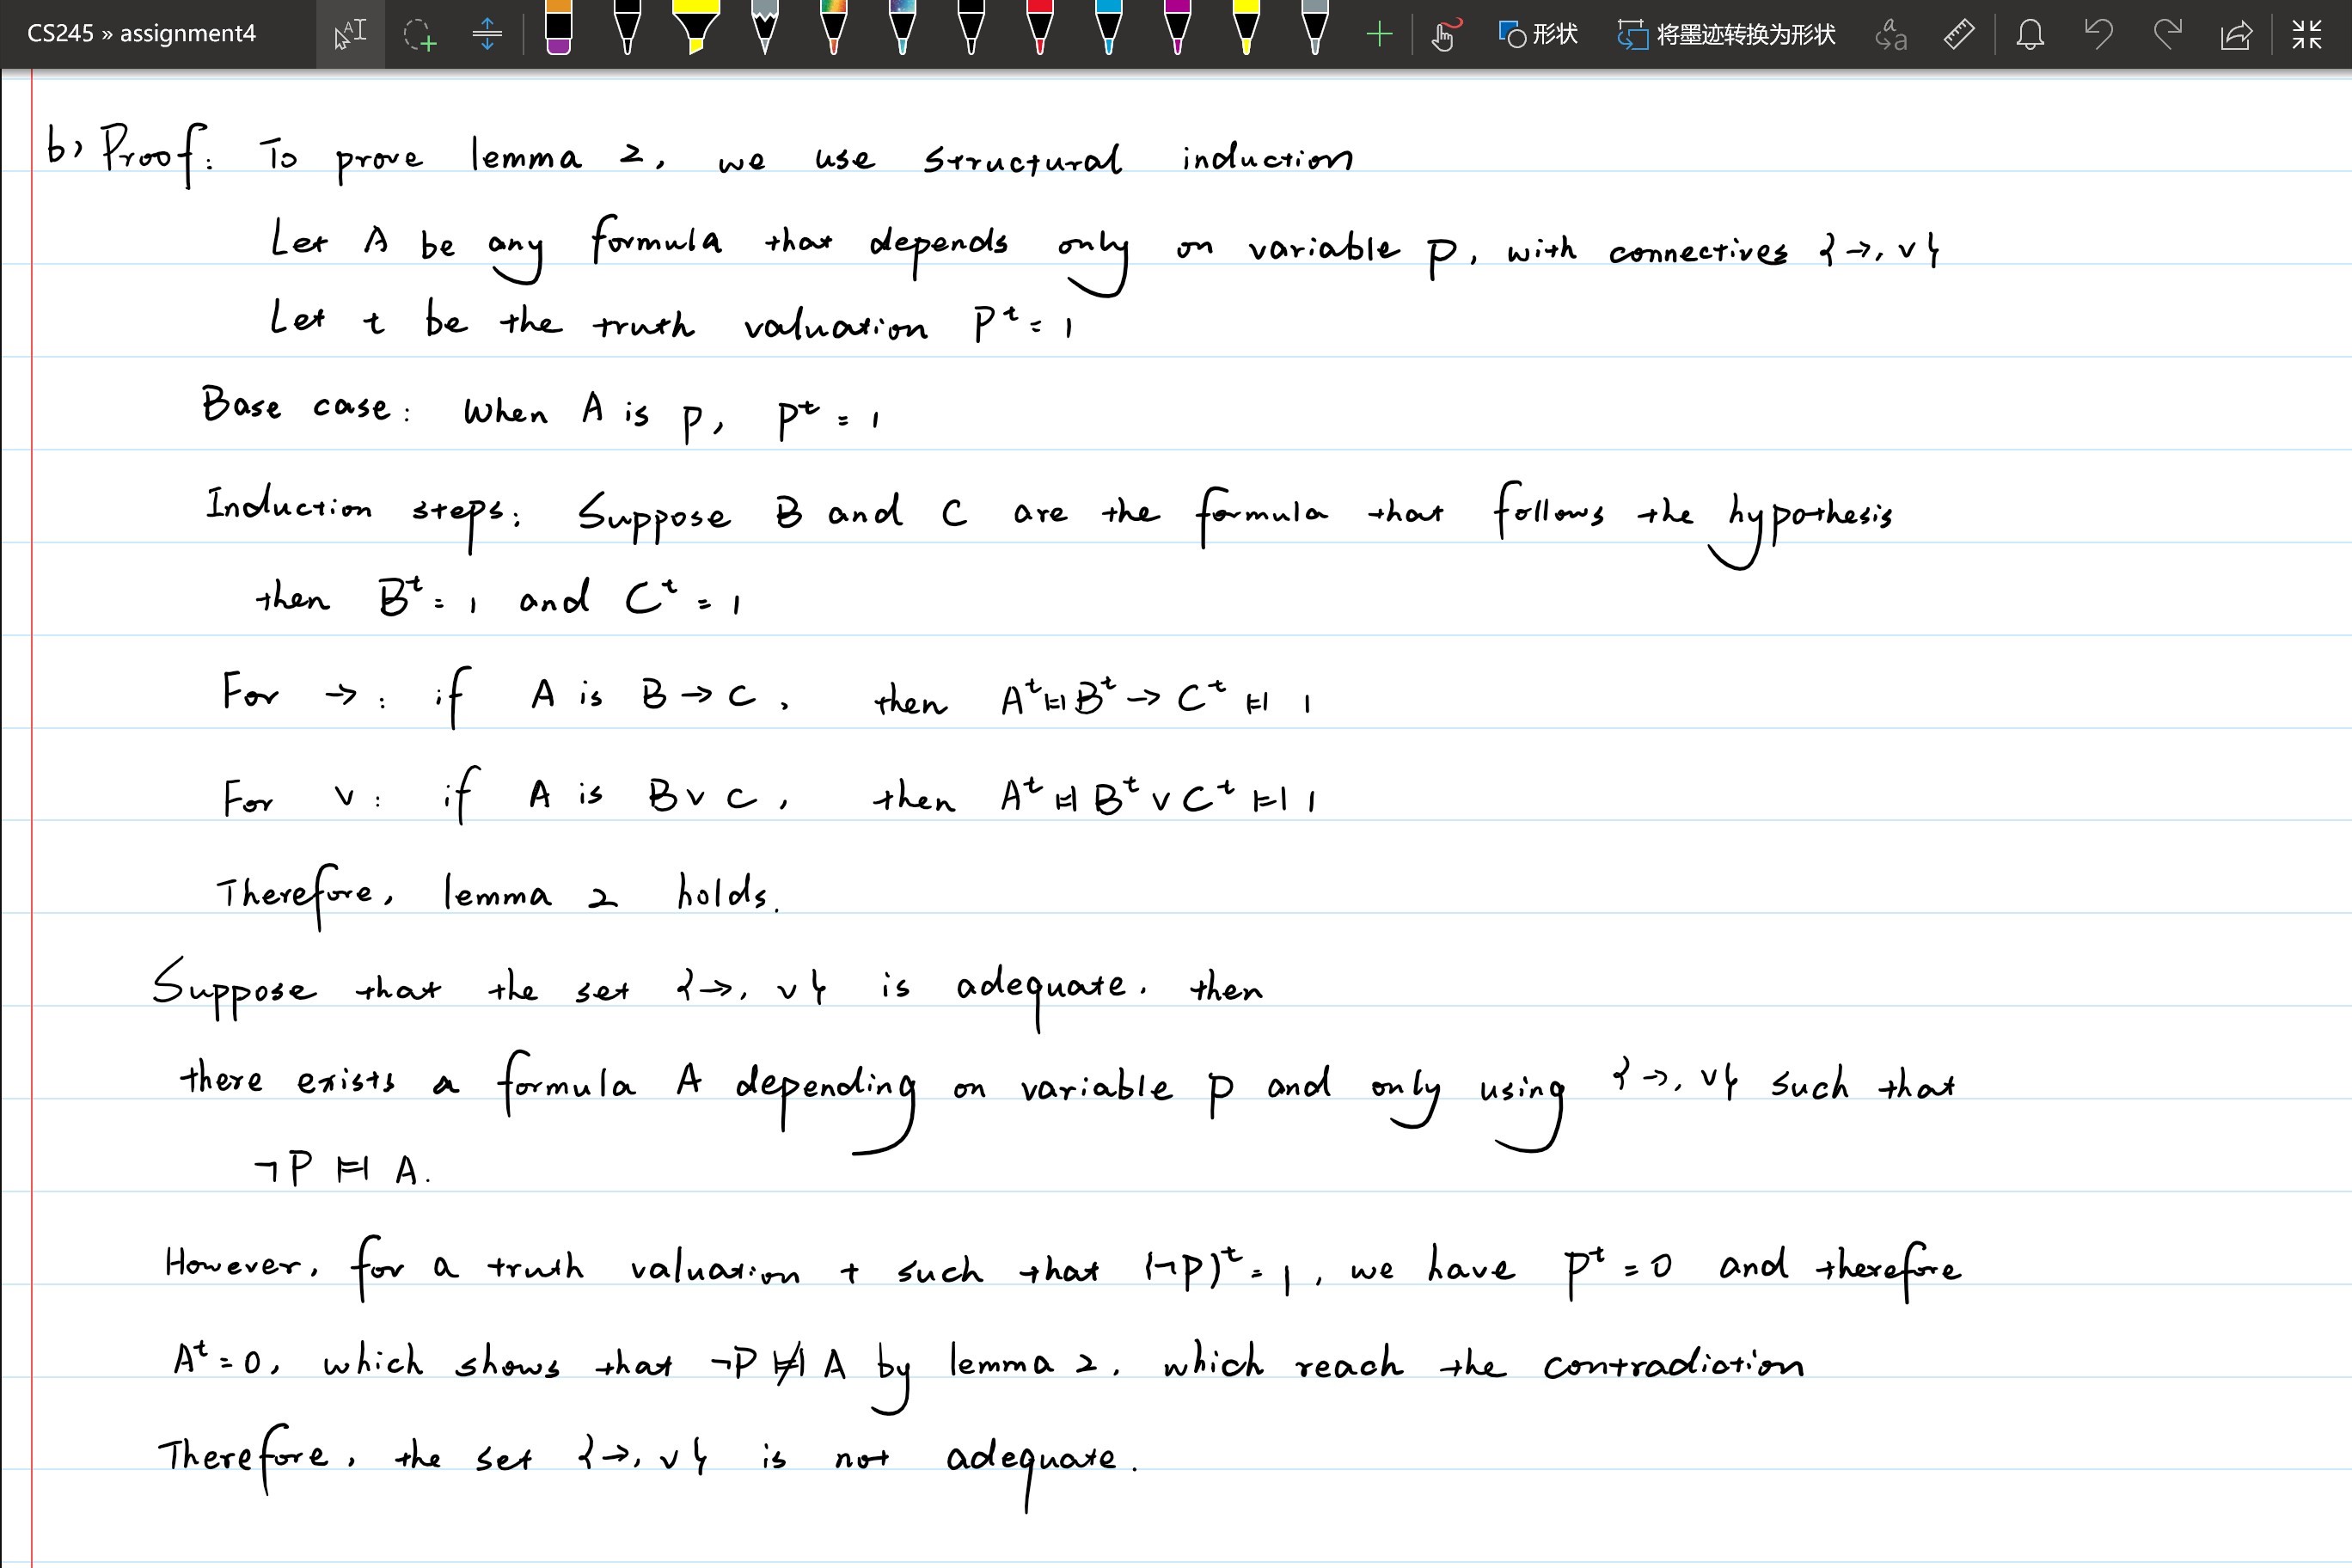 CS245 » assignment4
形状
将墨迹转换为形状
b) Proof: To prove lemma 2, we use structural induction
Let A be any formula that depends only on variable p, with connectives {→, ∨}
Let t be the truth valuation P^t = 1
Base case: When A is p, P^t = 1
Induction steps: Suppose B and C are the formula that follows the hypothesis
then B^t = 1 and C^t = 1
For →: if A is B → C, then A^t ⊨⫤ B^t → C^t ⊨⫤ 1
For ∨: if A is B ∨ C, then A^t ⊨⫤ B^t ∨ C^t ⊨⫤ 1
Therefore, lemma 2 holds.
Suppose that the set {→, ∨} is adequate. then
there exists a formula A depending on variable p and only using {→, ∨} such that
¬P ⊨⫤ A.
However, for a truth valuation t such that (¬P)^t = 1, we have P^t = 0 and therefore
A^t = 0, which shows that ¬P ⊭⫤ A by lemma 2, which reach the contradiation
Therefore, the set {→, ∨} is not adequate.